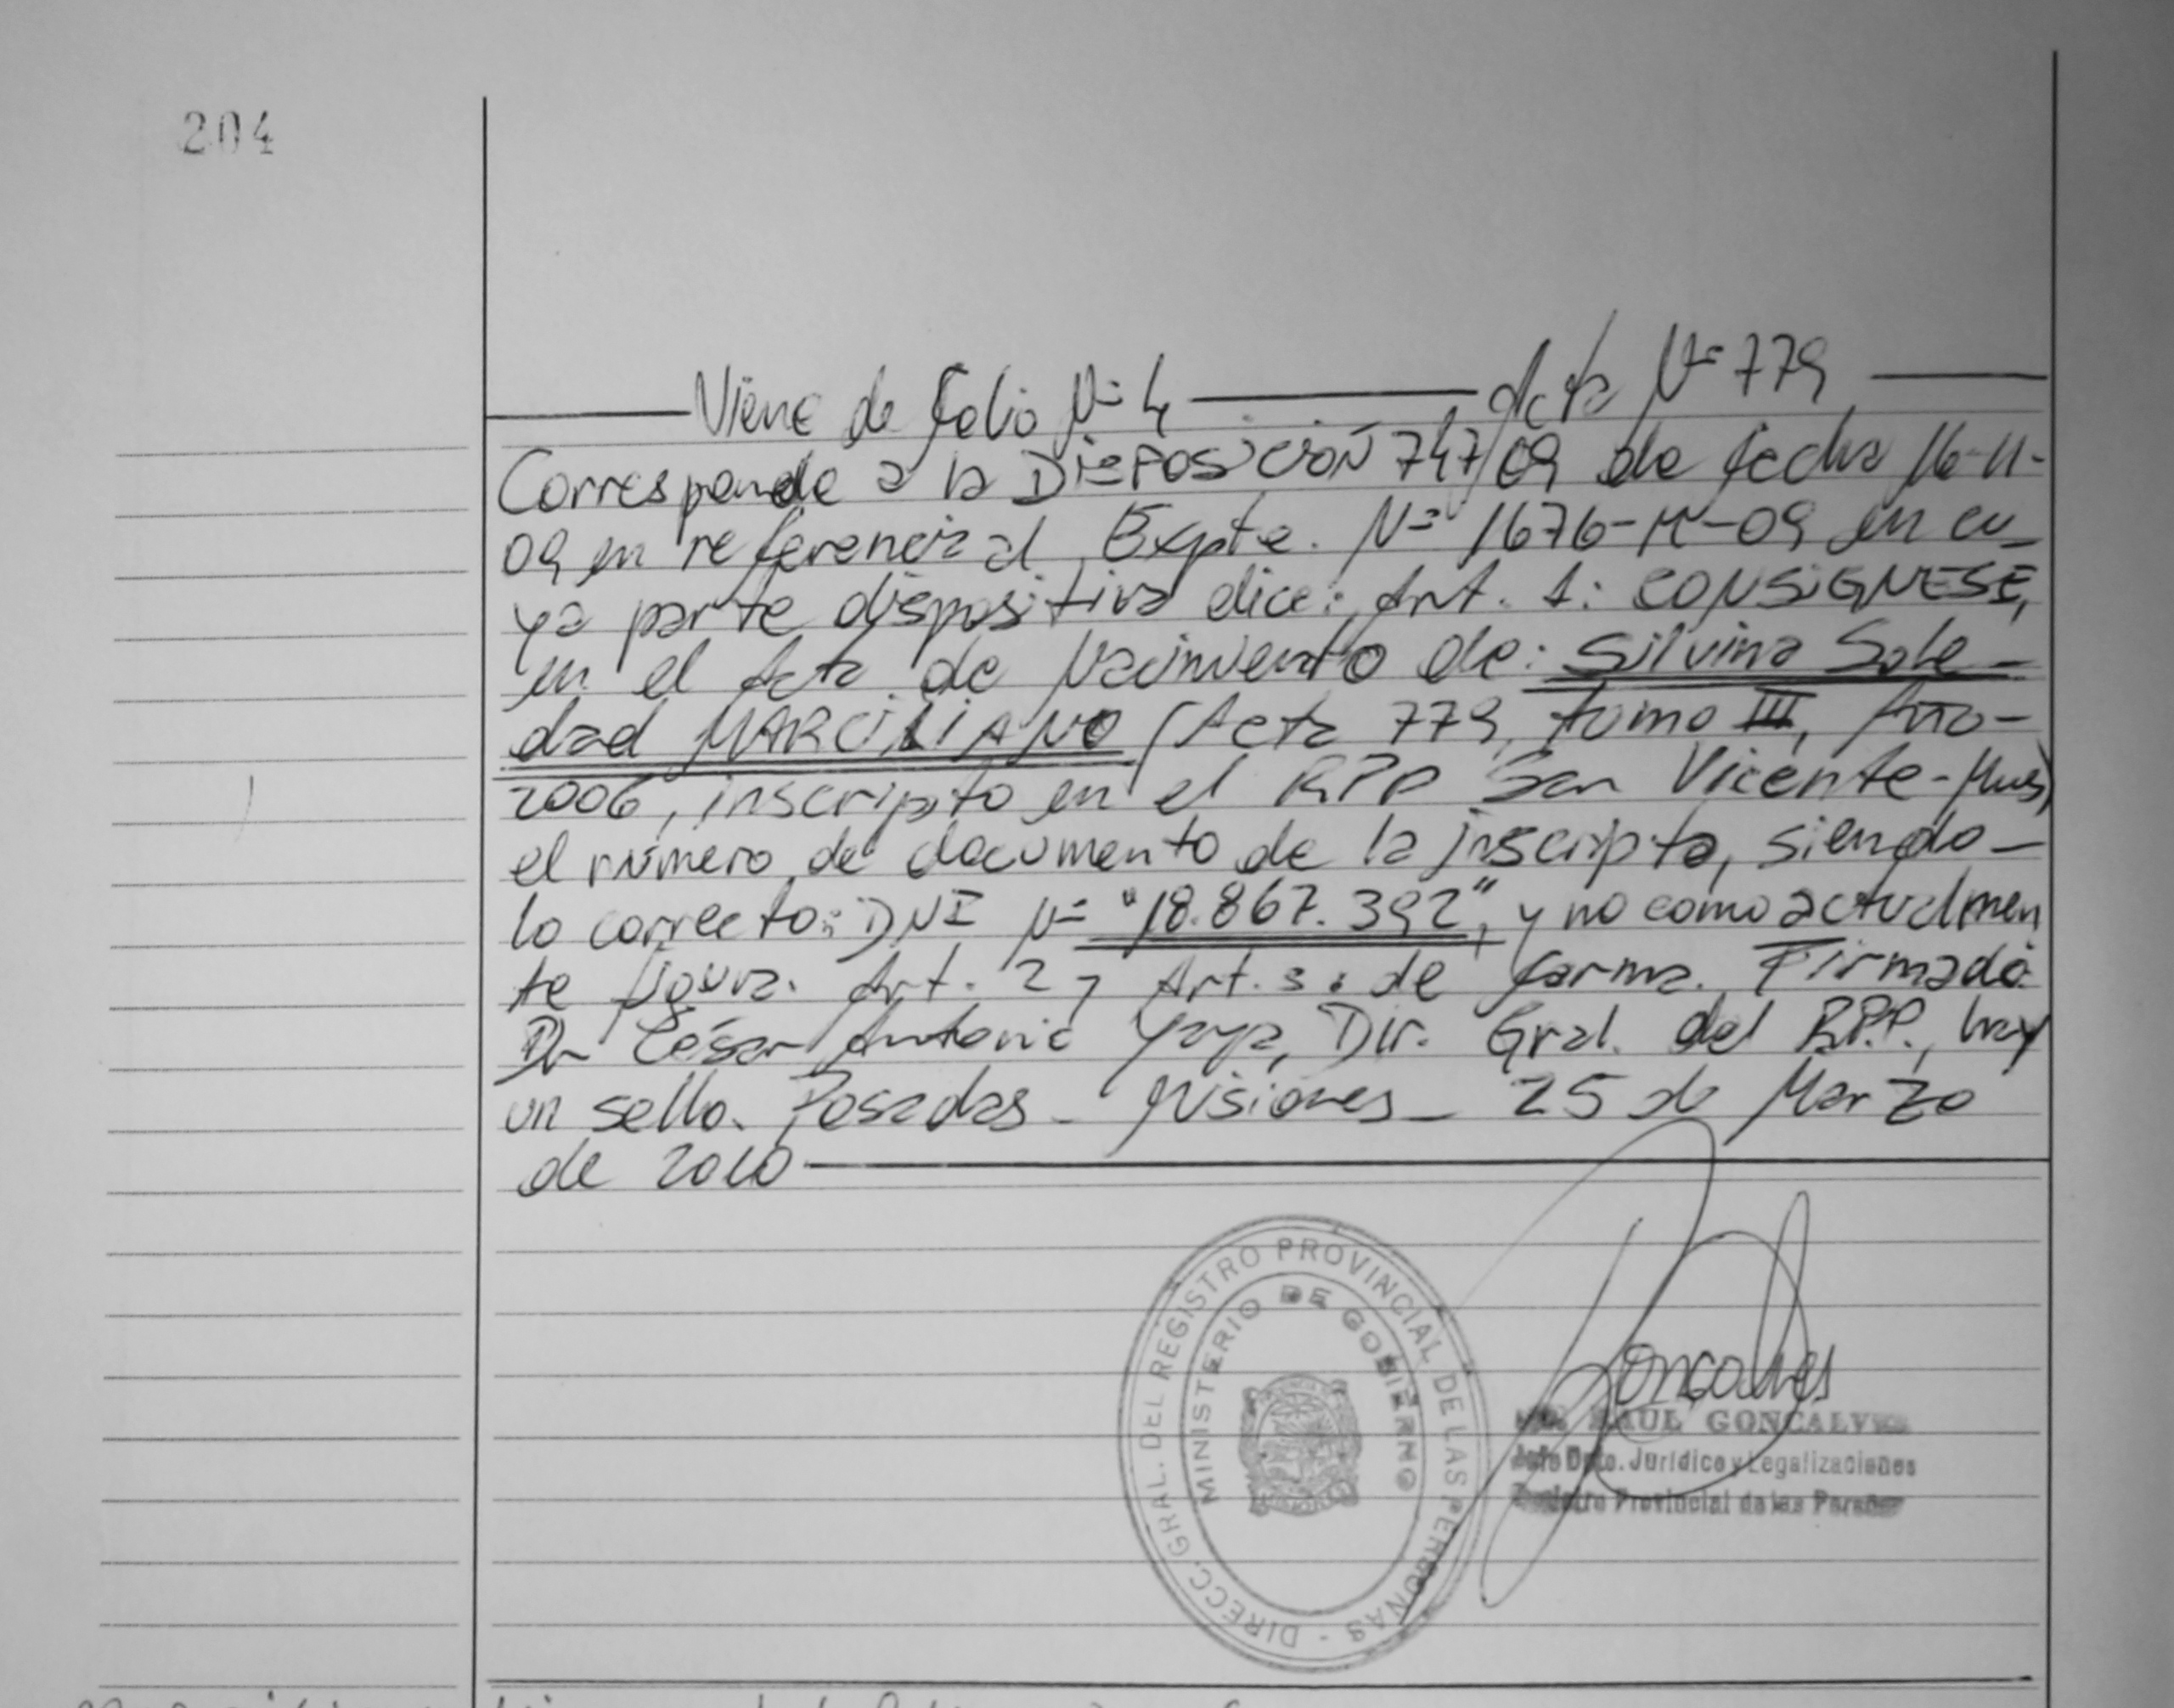 204
Viene de Folio Nº 4 Acta Nº 779
Corresponde a la DISPOSICIÓN 747/09 de fecha 16-11-
09 en referencia al Expte. Nº 1676-M-09 en cu_
ya parte dispositiva dice: Art. 1: CONSIGNESE,
en el Acta de Nacimiento de: Silvina Sole_
dad MARCILIANO (Acta 779, tomo III, Año-
2006, inscripto en el RPP San Vicente-Mnes)
el número de documento de la inscripta, siendo_
lo correcto: DNI Nº "18.867.392", y no como actualmen
te figura. Art. 2 y Art. 3: de forma. Firmado:
Dr César Antonio Yaya, Dir. Gral. del RPP., hay
un sello. Posadas_ Misiones_ 25 de Marzo
de 2010
DIRECC. GRAL. DEL REGISTRO PROVINCIAL DE LAS PERSONAS -
MINISTERIO DE GOBIERNO
Goncalves
RAUL GONCALVES
Jefe Dpto. Jurídico y Legalizaciones
Registro Provincial de las Personas